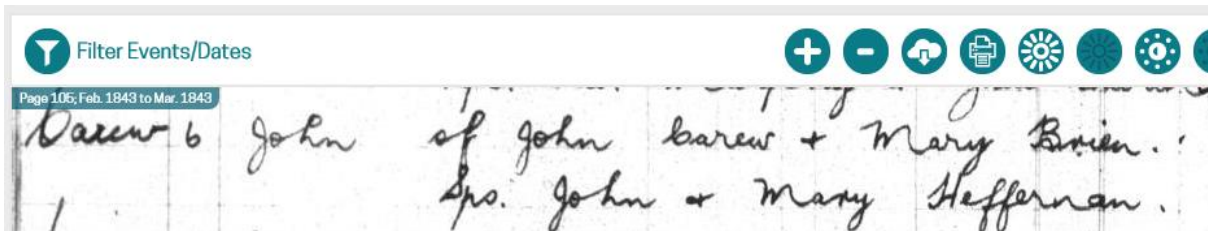 Filter Events/Dates
Page 105; Feb. 1843 to Mar. 1843
Carew 6 John of John Carew + Mary Brien.
Sps. John + Mary Heffernan.